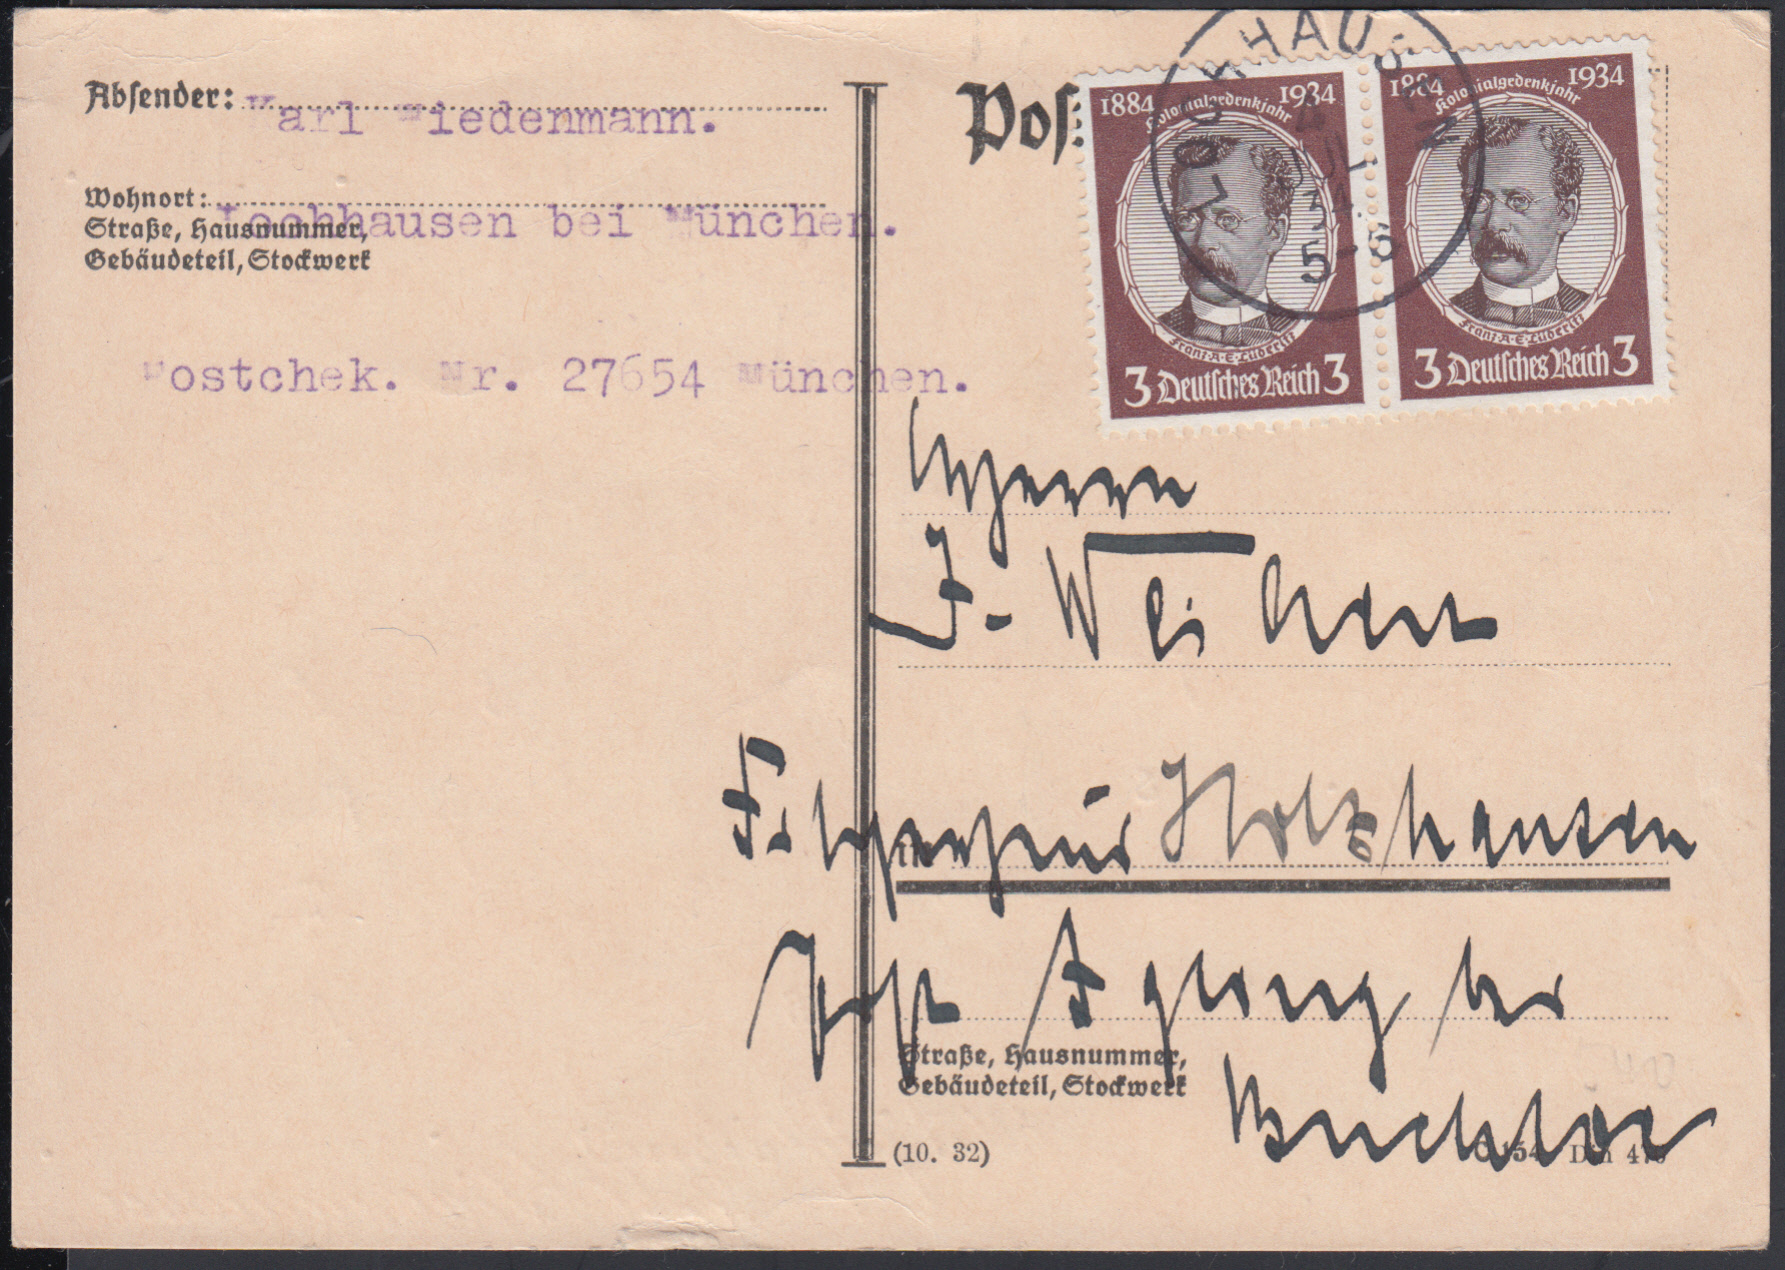 Absender: Karl Wiedenmann.
Wohnort: Lochhausen bei München.
Straße, Hausnummer,
Gebäudeteil, Stockwerk
Postchek. Nr. 27654 München.
Pos
1884 Kolonialgedenkjahr 1934
Franz A. E. Lüderitz
3 Deutsches Reich 3
1884 Kolonialgedenkjahr 1934
Franz A. E. Lüderitz
3 Deutsches Reich 3
LOCHHAUSEN
4
JUL
34
5-6
Herrn
J.
in
Holzhausen
Post Igling bei
Buchloe
Straße, Hausnummer,
Gebäudeteil, Stockwerk
(10. 32)
C 154 Din 476